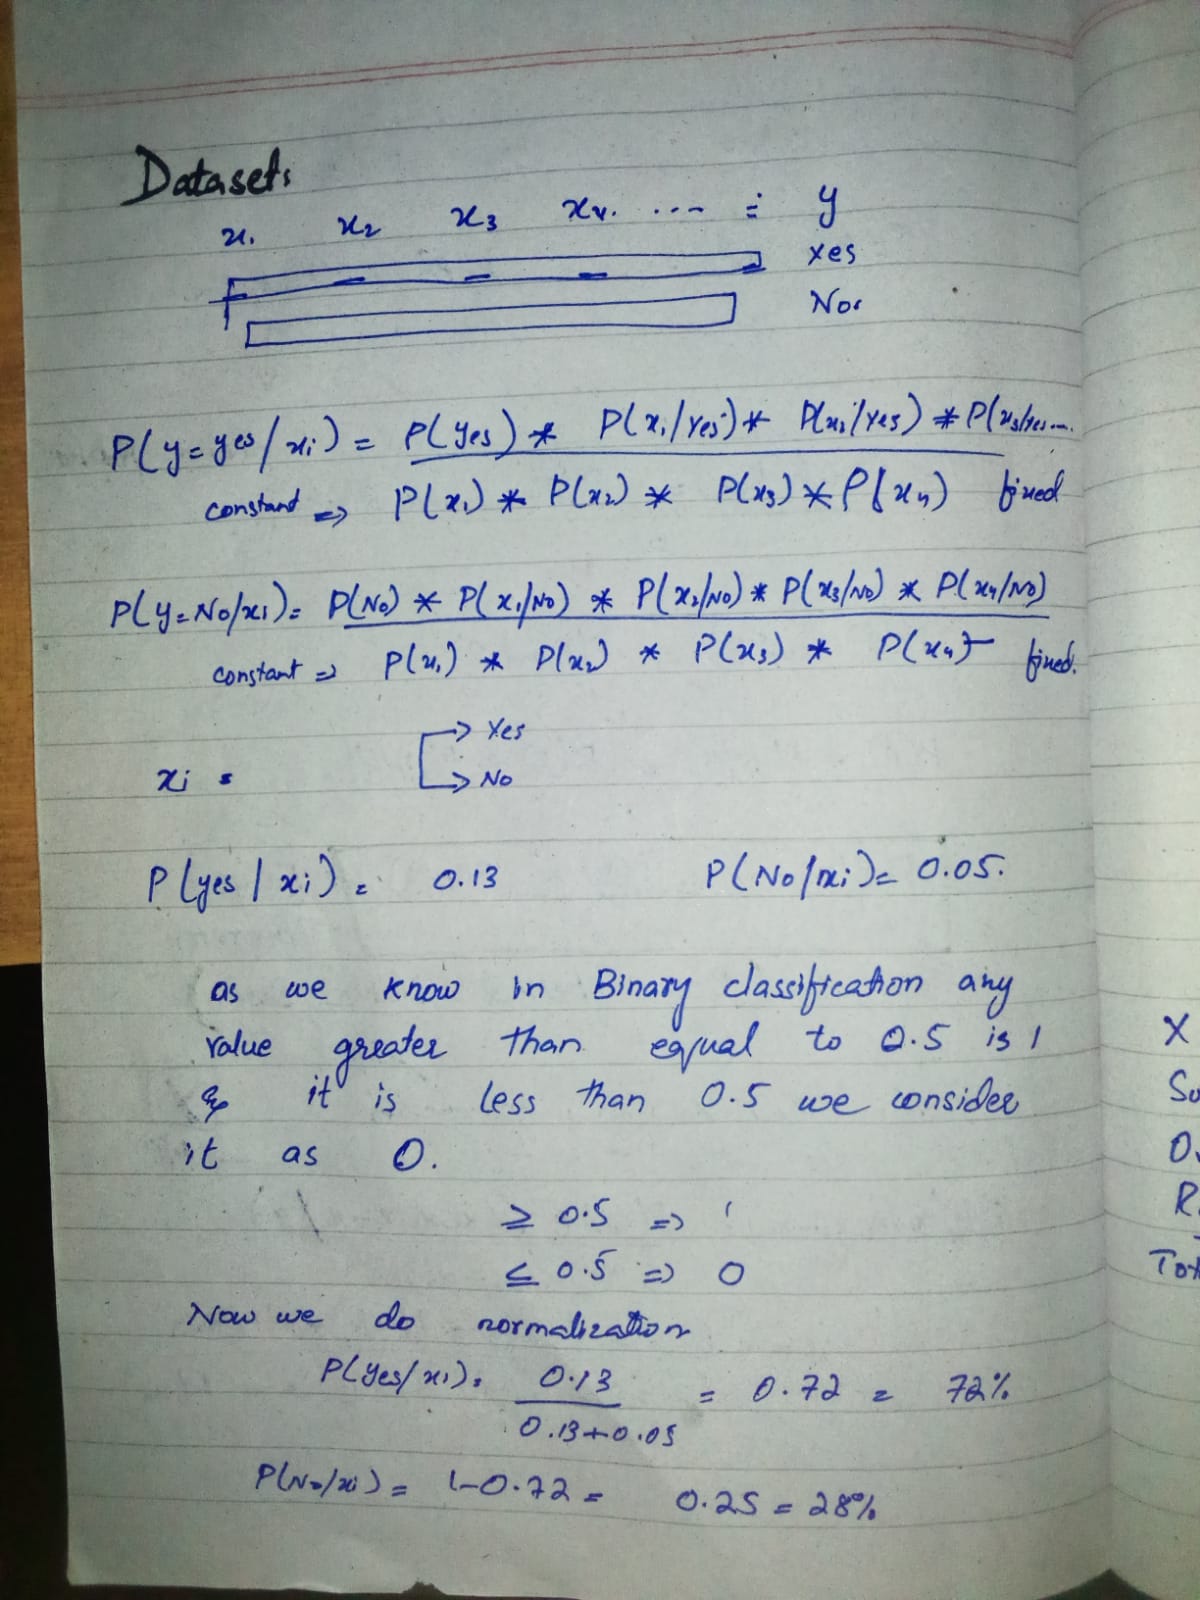 Dataset:
x1 x2 x3 x4. ... = y
Yes
No
P(y=yes/xi) = P(Yes) * P(x1/Yes) * P(x2/Yes) * P(x3/Yes ....
constant => P(x1) * P(x2) * P(x3) * P(x4) fixed
P(y=No/xi) = P(No) * P(x1/No) * P(x2/No) * P(x3/No) * P(x4/No)
constant => P(x1) * P(x2) * P(x3) * P(x4) fixed.
→ Yes
xi =
→ No
P(yes | xi) = 0.13 P(No/xi) = 0.05.
as we know in Binary classification any
value greater than equal to 0.5 is 1
& it is less than 0.5 we consider
it as 0.
≥ 0.5 => 1
≤ 0.5 => 0
Now we do normalization
P(Yes/xi) = 0.13 = 0.72 = 72%
0.13+0.05
P(No/xi) = 1-0.72 = 0.25 = 28%
X
0.
Tot